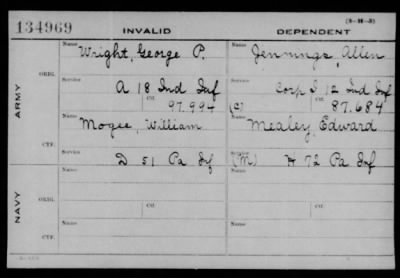 134969 INVALID DEPENDENT (3—H—3)
Name Wright, George P. Name Jennings, Allen
ARMY ORIG. Service A 18 Ind Inf Service Corp I 12 Ind Inf
Ctf. 97.994 (C) Ctf. 87.684
Name Mogee, William Name Mealey, Edward
CTF. Service D 51 Pa Inf Service (M) H 72 Pa Inf
NAVY ORIG. Name Name
Service Ctf. Service Ctf.
CTF. Name Name
Service Service